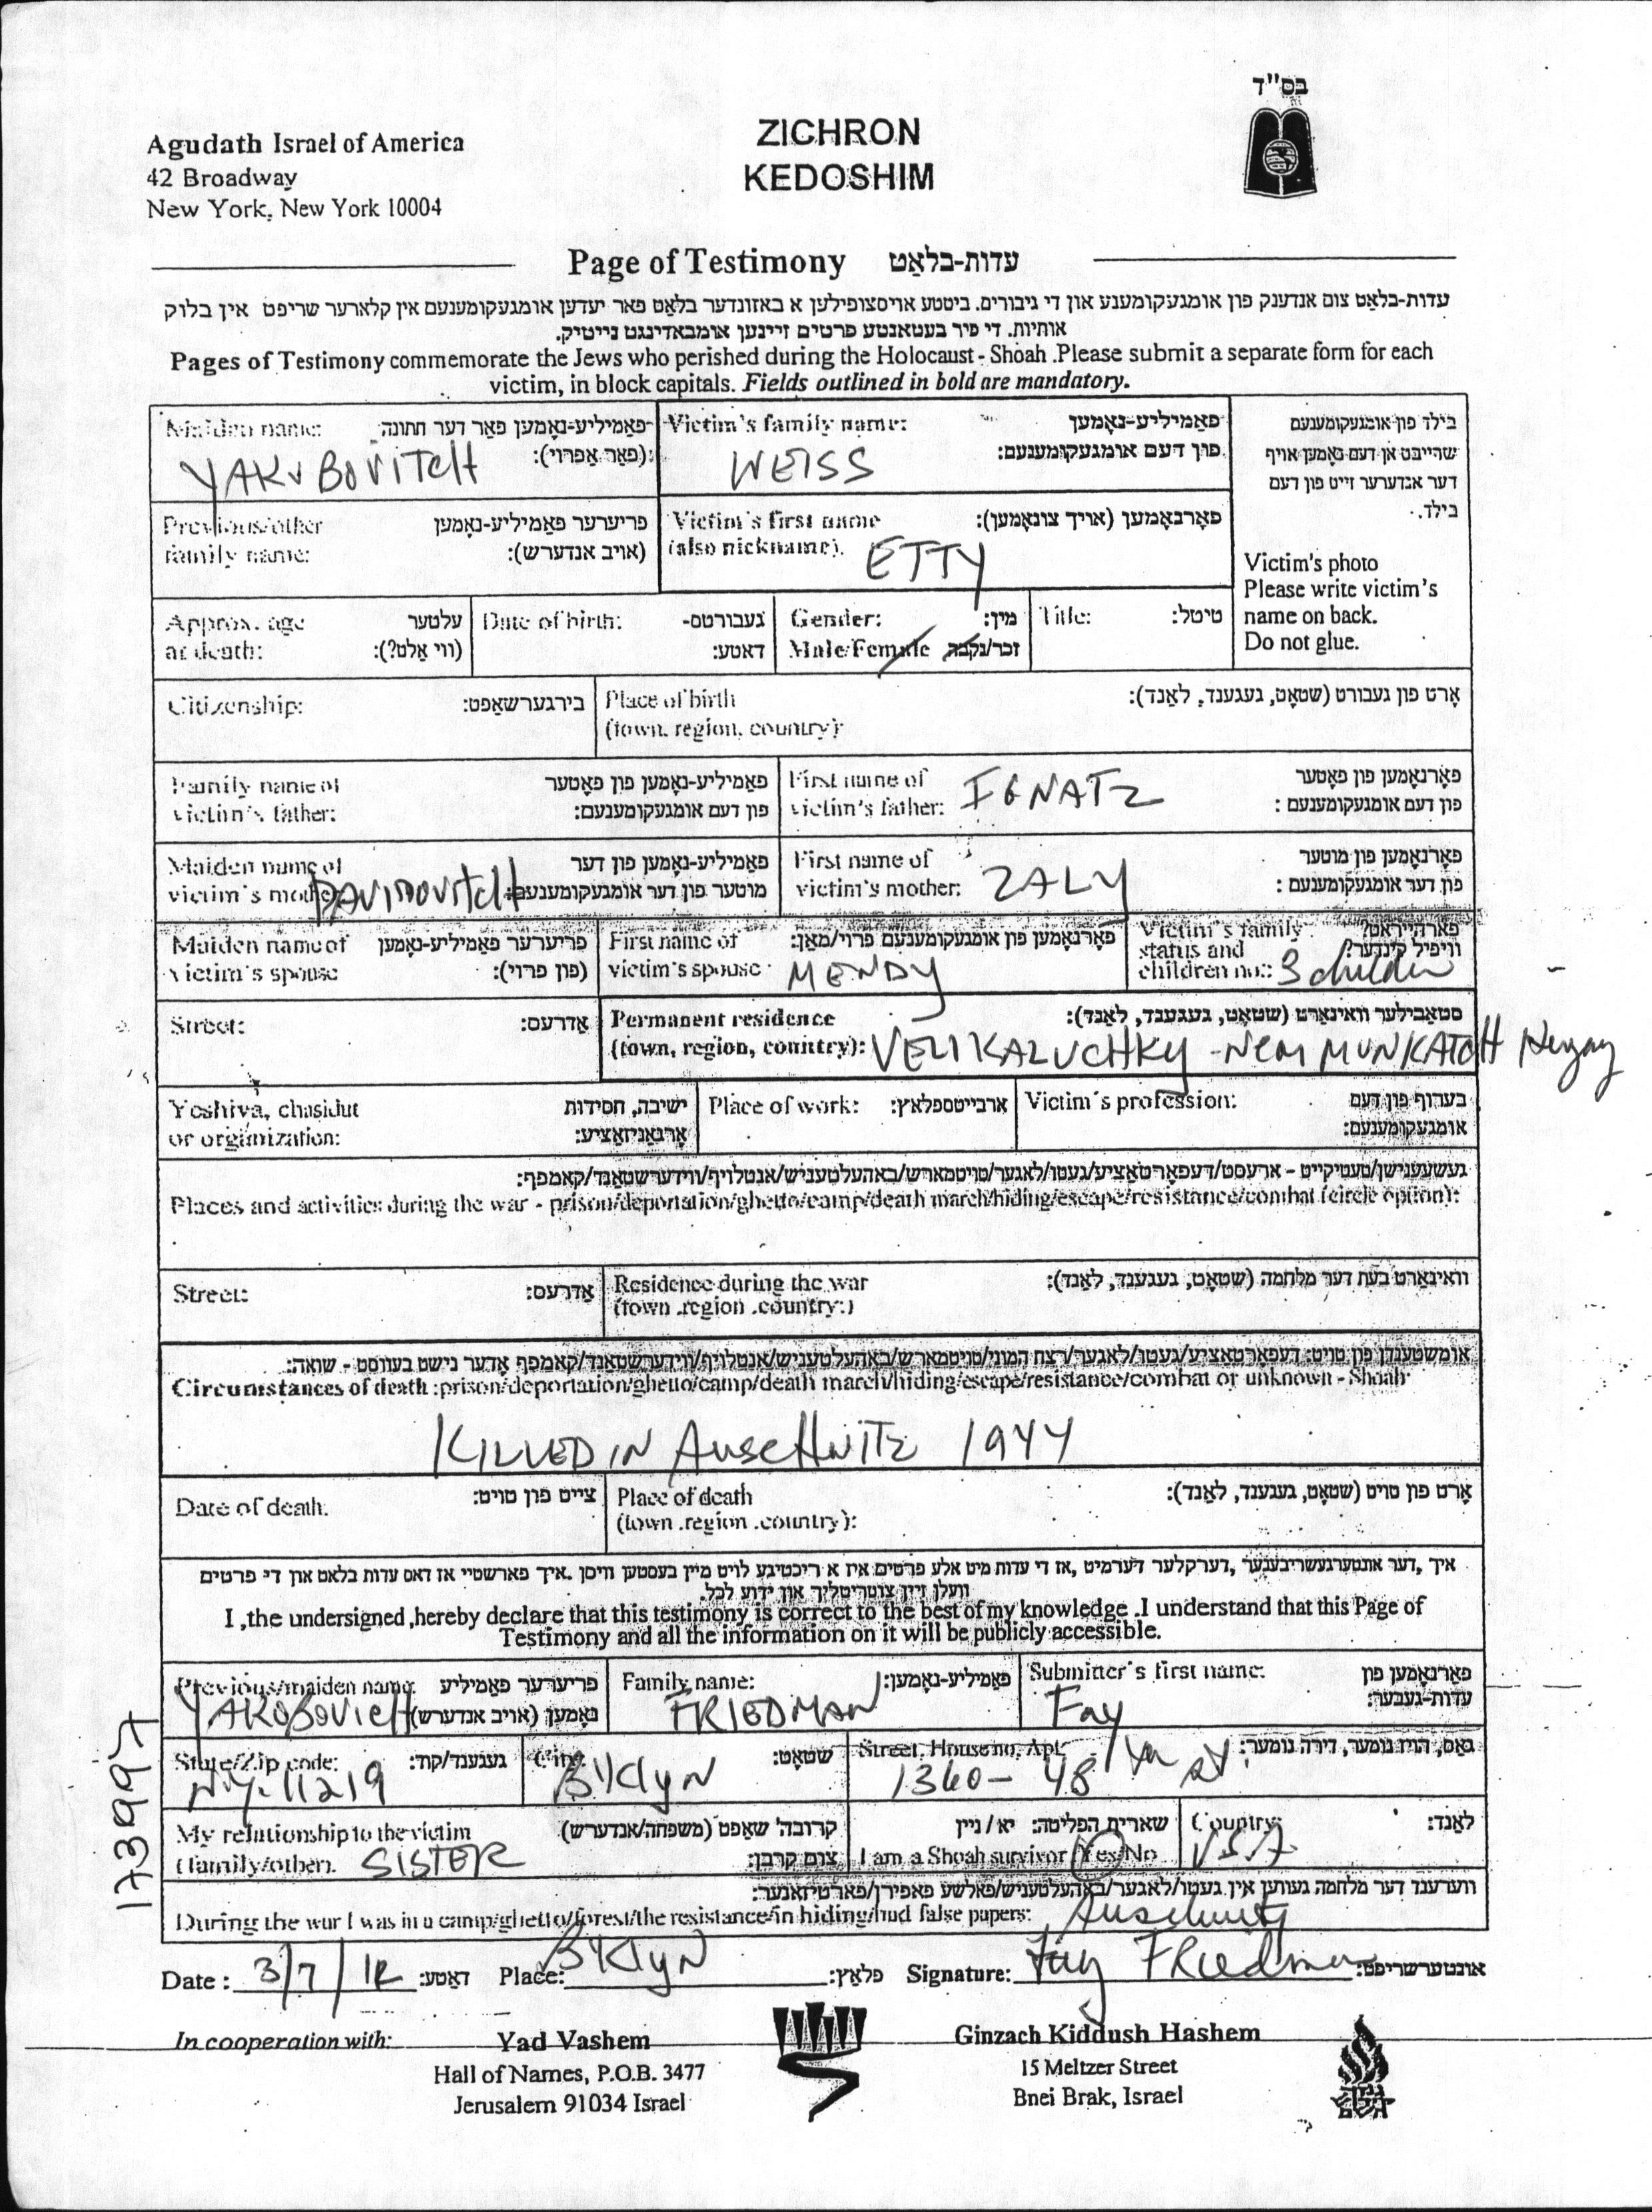 בס"ד
Agudath Israel of America
42 Broadway
New York, New York 10004
ZICHRON
KEDOSHIM
Page of Testimony עדות-בלאַט
עדות-בלאַט צום אנדענק פון אומגעקומענע און די גיבורים. ביטטע אויסצופילען א באזונדער בלאַט פאר יעדען אומגעקומענעם אין קלארער שריפט אין בלוק
אותיות. די פיר בעטאנטע פרטים זיינען אומבאדינגט נייטיק.
Pages of Testimony commemorate the Jews who perished during the Holocaust - Shoah .Please submit a separate form for each
victim, in block capitals. Fields outlined in bold are mandatory.
Maiden name: פאַמיליע-נאָמען פאַר דער חתונה
(פאַר אַפרוי):
YAKUBOVITCH
Victim's family name: פאַמיליע-נאָמען
פון דעם אומגעקומענעם:
WEISS
בילד פון אומגעקומענעם
שרייבט אן דעם נאָמען אויף
דער אנדערער זייט פון דעם
בילד.
Victim's photo
Please write victim's
name on back.
Do not glue.
Previous/other פריערער פאַמיליע-נאָמען
family name: (אויב אנדערש):
Victim's first name פאָרנאָמען (אויך צונאָמען):
(also nickname). ETTY
Approx. age עלטער
at death: (ווי אַלט?):
Date of birth: געבורטס-
דאטע:
Gender: מין:
Male/Female זכר/נקבה
Title: טיטל:
Citizenship: בירגערשאַפט:
Place of birth אָרט פון געבורט (שטאָט, געגענד, לאַנד):
(town, region, country):
Family name of פאַמיליע-נאָמען פון פאָטער
victim's father: פון דעם אומגעקומענעם:
First name of פאָרנאָמען פון פאָטער
victim's father: IGNATZ פון דעם אומגעקומענעם :
Maiden name of פאַמיליע-נאָמען פון דער
victim's mother DAVIDOVITCH מוטער פון דער אומגעקומענעם:
First name of פאָרנאָמען פון מוטער
victim's mother: ZALY פון דער אומגעקומענעם :
Maiden name of פריערער פאַמיליע-נאָמען
victim's spouse (פון פרוי):
First name of פאָרנאָמען פון אומגעקומענעם פרוי/מאַן:
victim's spouse MENDY
Victim's family פארהייראט?
status and וויפיל קינדער?
children no.: 3 children
Street: אַדרעס:
Permanent residence סטאַבילער וואוינאָרט (שטאָט, געגענד, לאַנד):
(town, region, country): VELIKALUCHKY - Near MUNKATCH
Yeshiva, chasidut ישיבה, חסידות
or organization: אָרגאַניזאַציע:
Place of work: ארבייטספלאץ:
Victim's profession: בערוף פון דעם
אומגעקומענעם:
געשעענישן/טעטיקייט - ארעסט/דעפאָרטאַציע/געטו/לאגער/טויטמארש/באהעלטעניש/אנטלויף/ווידערשטאַנד/קאמפף:
Places and activities during the war - prison/deportation/ghetto/camp/death march/hiding/escape/resistance/combat (circle option):
Street: אַדרעס:
Residence during the war וואוינאָרט בעת דער מלחמה (שטאָט, געגענד, לאַנד):
(town .region .country:)
אומשטענדן פון טויט: דעפאָרטאַציע/געטו/לאגער/רצח המוני/טויטמארש/באהעלטעניש/אנטלויף/ווידערשטאַנד/קאמפף אָדער נישט בעוואוסט - שואה:
Circumstances of death :prison/deportation/ghetto/camp/death march/hiding/escape/resistance/combat or unknown - Shoah
KILLED IN AUSCHWITZ 1944
Date of death. צייט פון טויט:
Place of death אָרט פון טויט (שטאָט, געגענד, לאַנד):
(town .region .country):
איך ,דער אונטערגעשריבענער ,דערקלער דערמיט ,אז די עדות מיט אלע פרטים איז א ריכטיגע לויט מיין בעסטען וויסן .איך פארשטיי אז דאס עדות בלאט און די פרטים
וועלן זיין צוטריטליך און ידוע לכל.
I ,the undersigned ,hereby declare that this testimony is correct to the best of my knowledge .I understand that this Page of
Testimony and all the information on it will be publicly accessible.
Previous/maiden name: פריערער פאַמיליע
YAKOBOVICH נאָמען (אויב אנדערש)
Family name: פאַמיליע-נאָמען:
FRIEDMAN
Submitter's first name: פאָרנאָמען פון
עדות-געבער:
Fay
State/Zip code: געגענד/קוד:
N.Y. 11219
City: שטאָט:
BKLYN
Street, House no, Apt. גאַס, הויז נומער, דירה נומער:
1360 - 48 St
My relationship to the victim קרובה' שאפט (משפחה/אנדערש)
(family/other). SISTER צום קרבן:
שארית הפליטה: יא / ניין
I am a Shoah survivor Yes/No
Country: לאַנד:
USA
ווערענד דער מלחמה געווען אין געטו/לאגער/באַהעלטעניש/פאלשע פאפירן/פארטיזאנער:
During the war I was in a camp/ghetto/forest/the resistance/in hiding/had false papers: Auschwitz
Date : 3/7/12 דאַטע: Place: BKlyN פלאַץ: Signature: Fay Friedman אונטערשריפט:
In cooperation with:
Yad Vashem
Hall of Names, P.O.B. 3477
Jerusalem 91034 Israel
Ginzach Kiddush Hashem
15 Meltzer Street
Bnei Brak, Israel
173997